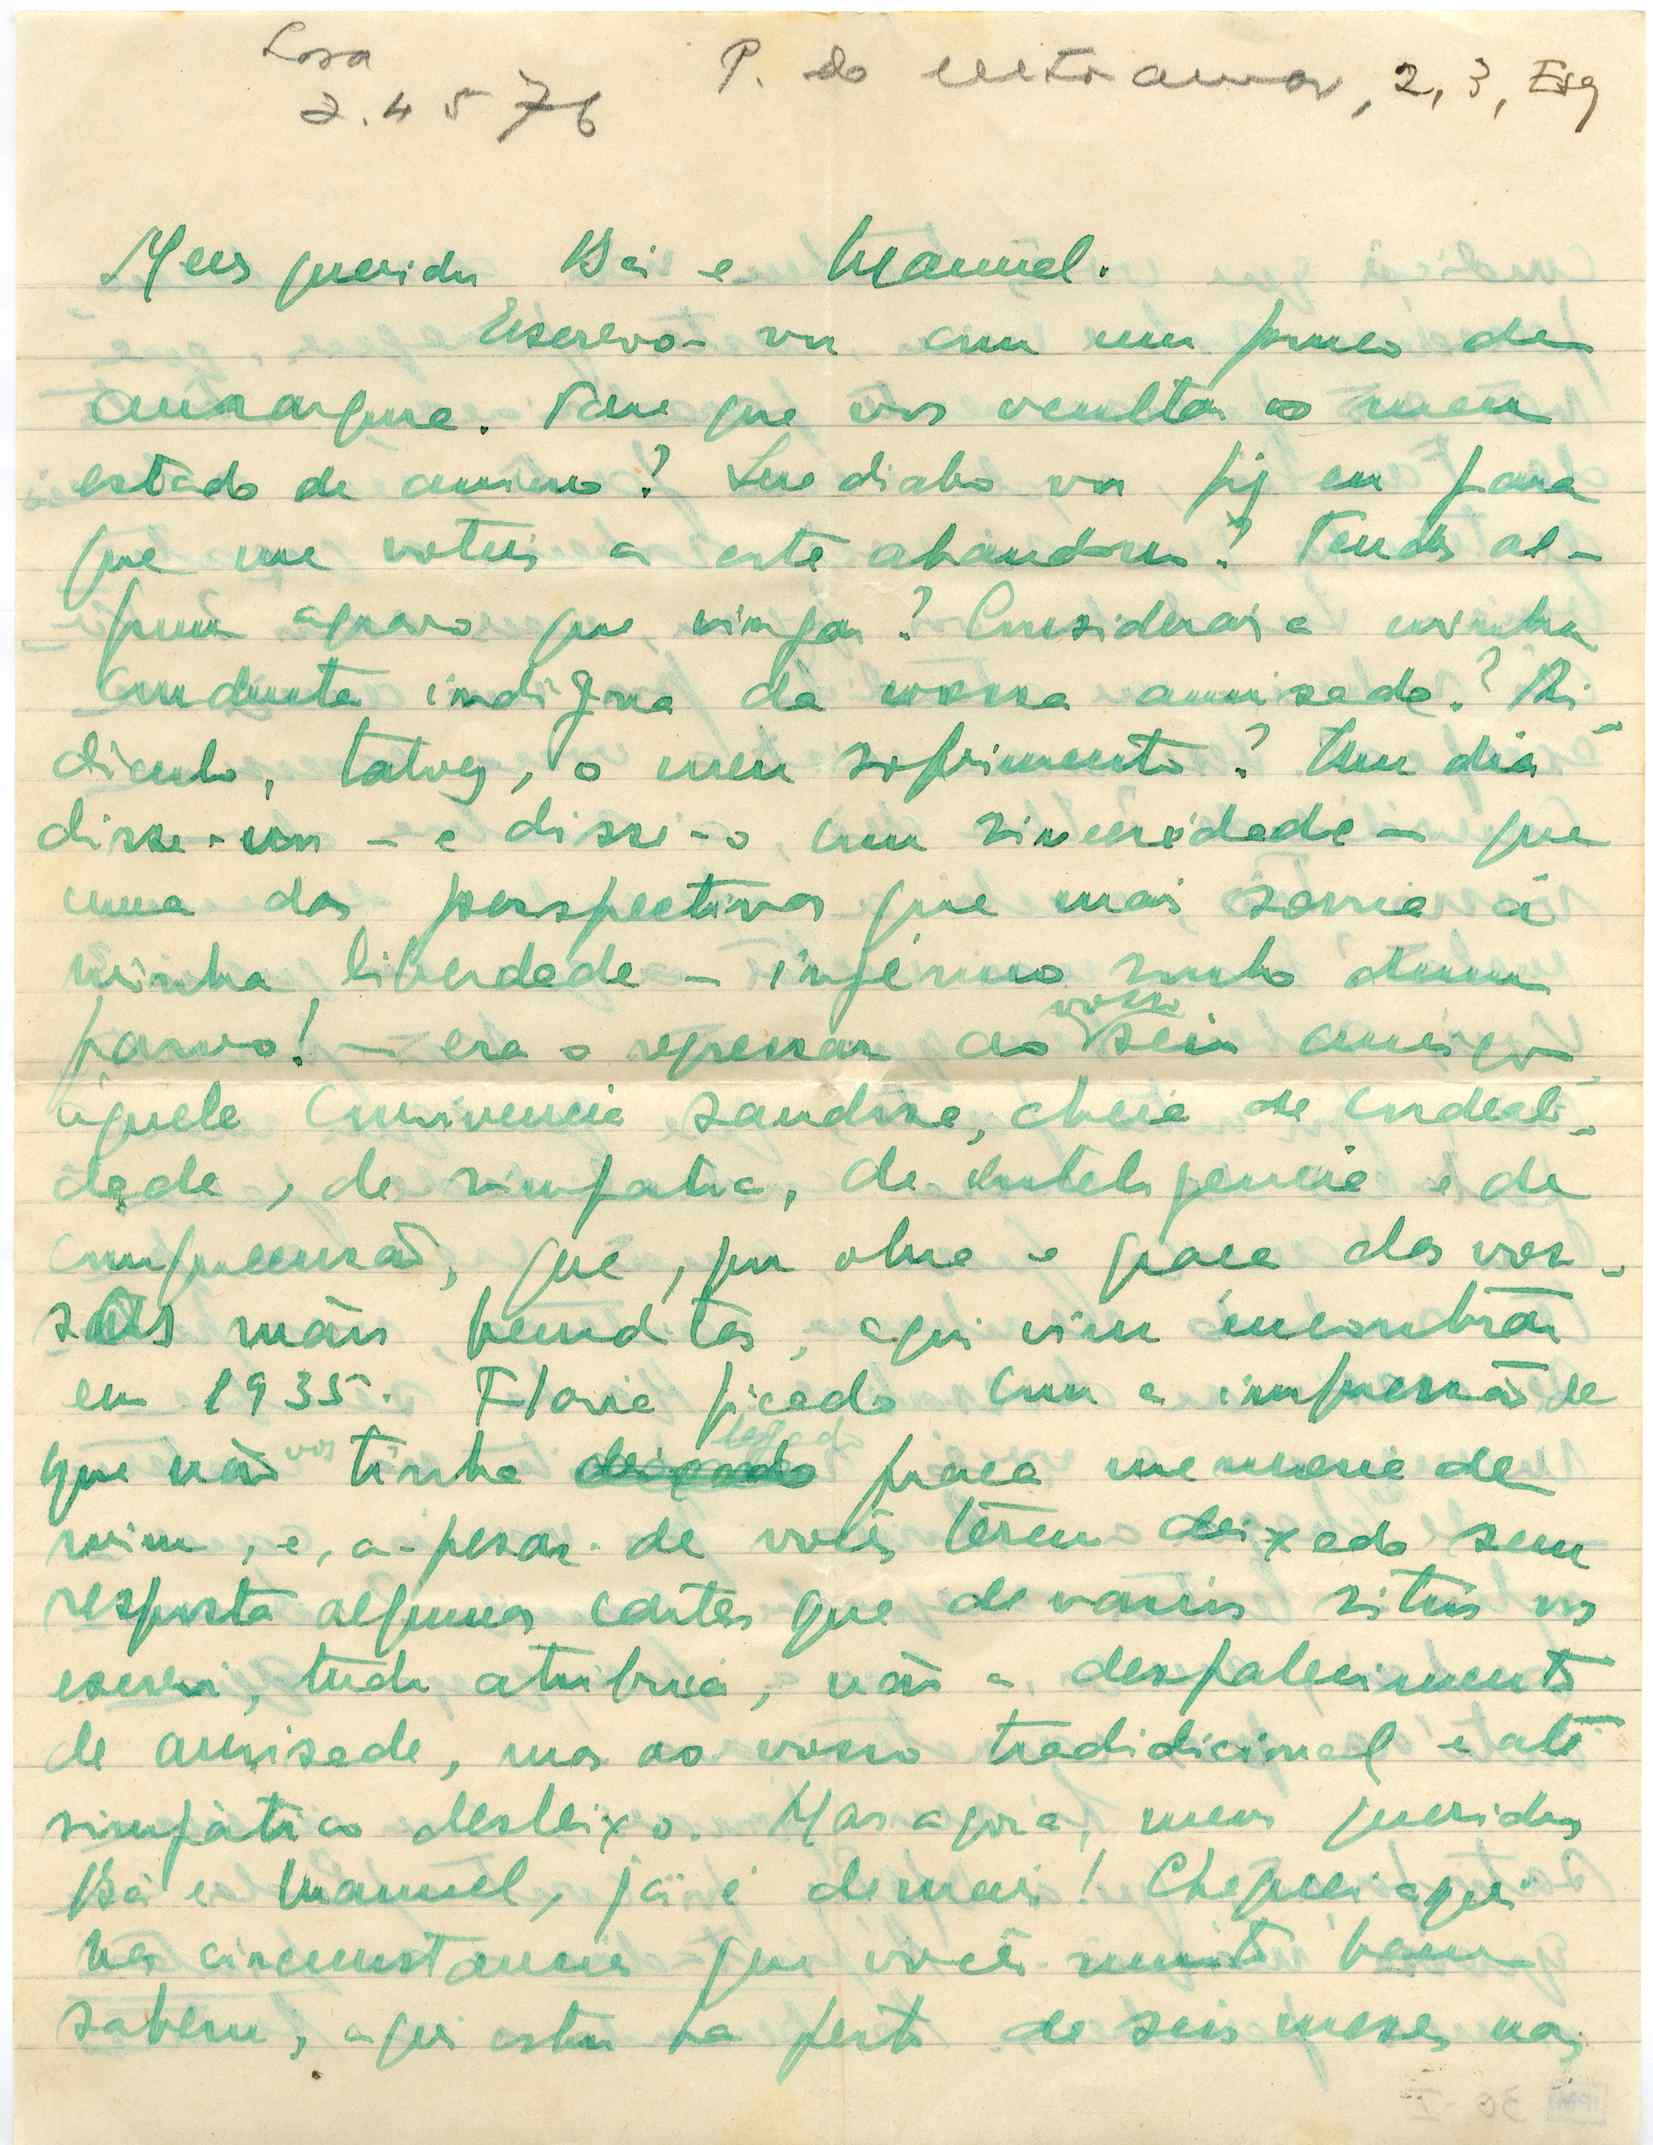 Rosa
2.4576
P. do Ultramar, 2, 3, Esq
Meus queridos Bá e Manuel.
Escrevo-vos com um pouco de
amargura. Para que vos ocultar o meu
estado de animo? Que diabo vos fiz eu para
que me voteis a este abandono? Tendes al-
gum agravo que vingar? Considerais a minha
conduta indigna da vossa amisade? Ri-
diculo, talvez, o meu sofrimento? Um dia
disse-vos – e disse-o com sinceridade – que
uma das perspectivas que mais sorria á
minha liberdade – ingénuo sonho dum
parvo! – era o regressar ao vosso seio amigo
áquela convivencia saudosa, cheia de cordeali-
dade, de simpatia, de inteligencia e de
compreensão, que, por obra e graça das vos-
sas mãos benditas, aqui vim encontrar
em 1935. Havia ficado com a impressão de
que não vos tinha deixado legado fraca memoria de
mim, e, a-pesar de vocês terem deixado sem
resposta algumas cartas que de varios sitios vos
escrevi, tudo atribuia, não a desfalecimento
de amisade, mas ao vosso tradidicional e até
simpático desleixo. Mas agora, meus queridos
Bá e Manuel, já é demais! Cheguei aqui
nas circumstancias que vocês muito bem
sabem, aqui estou ha perto de seis meses nas
30-V